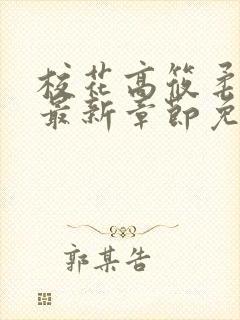 校花高筱柔
最新章节免
郭某告